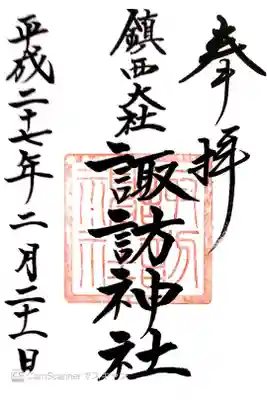 奉拝
鎮西大社
諏訪神社
平成二十七年二月二十一日
CamScanner